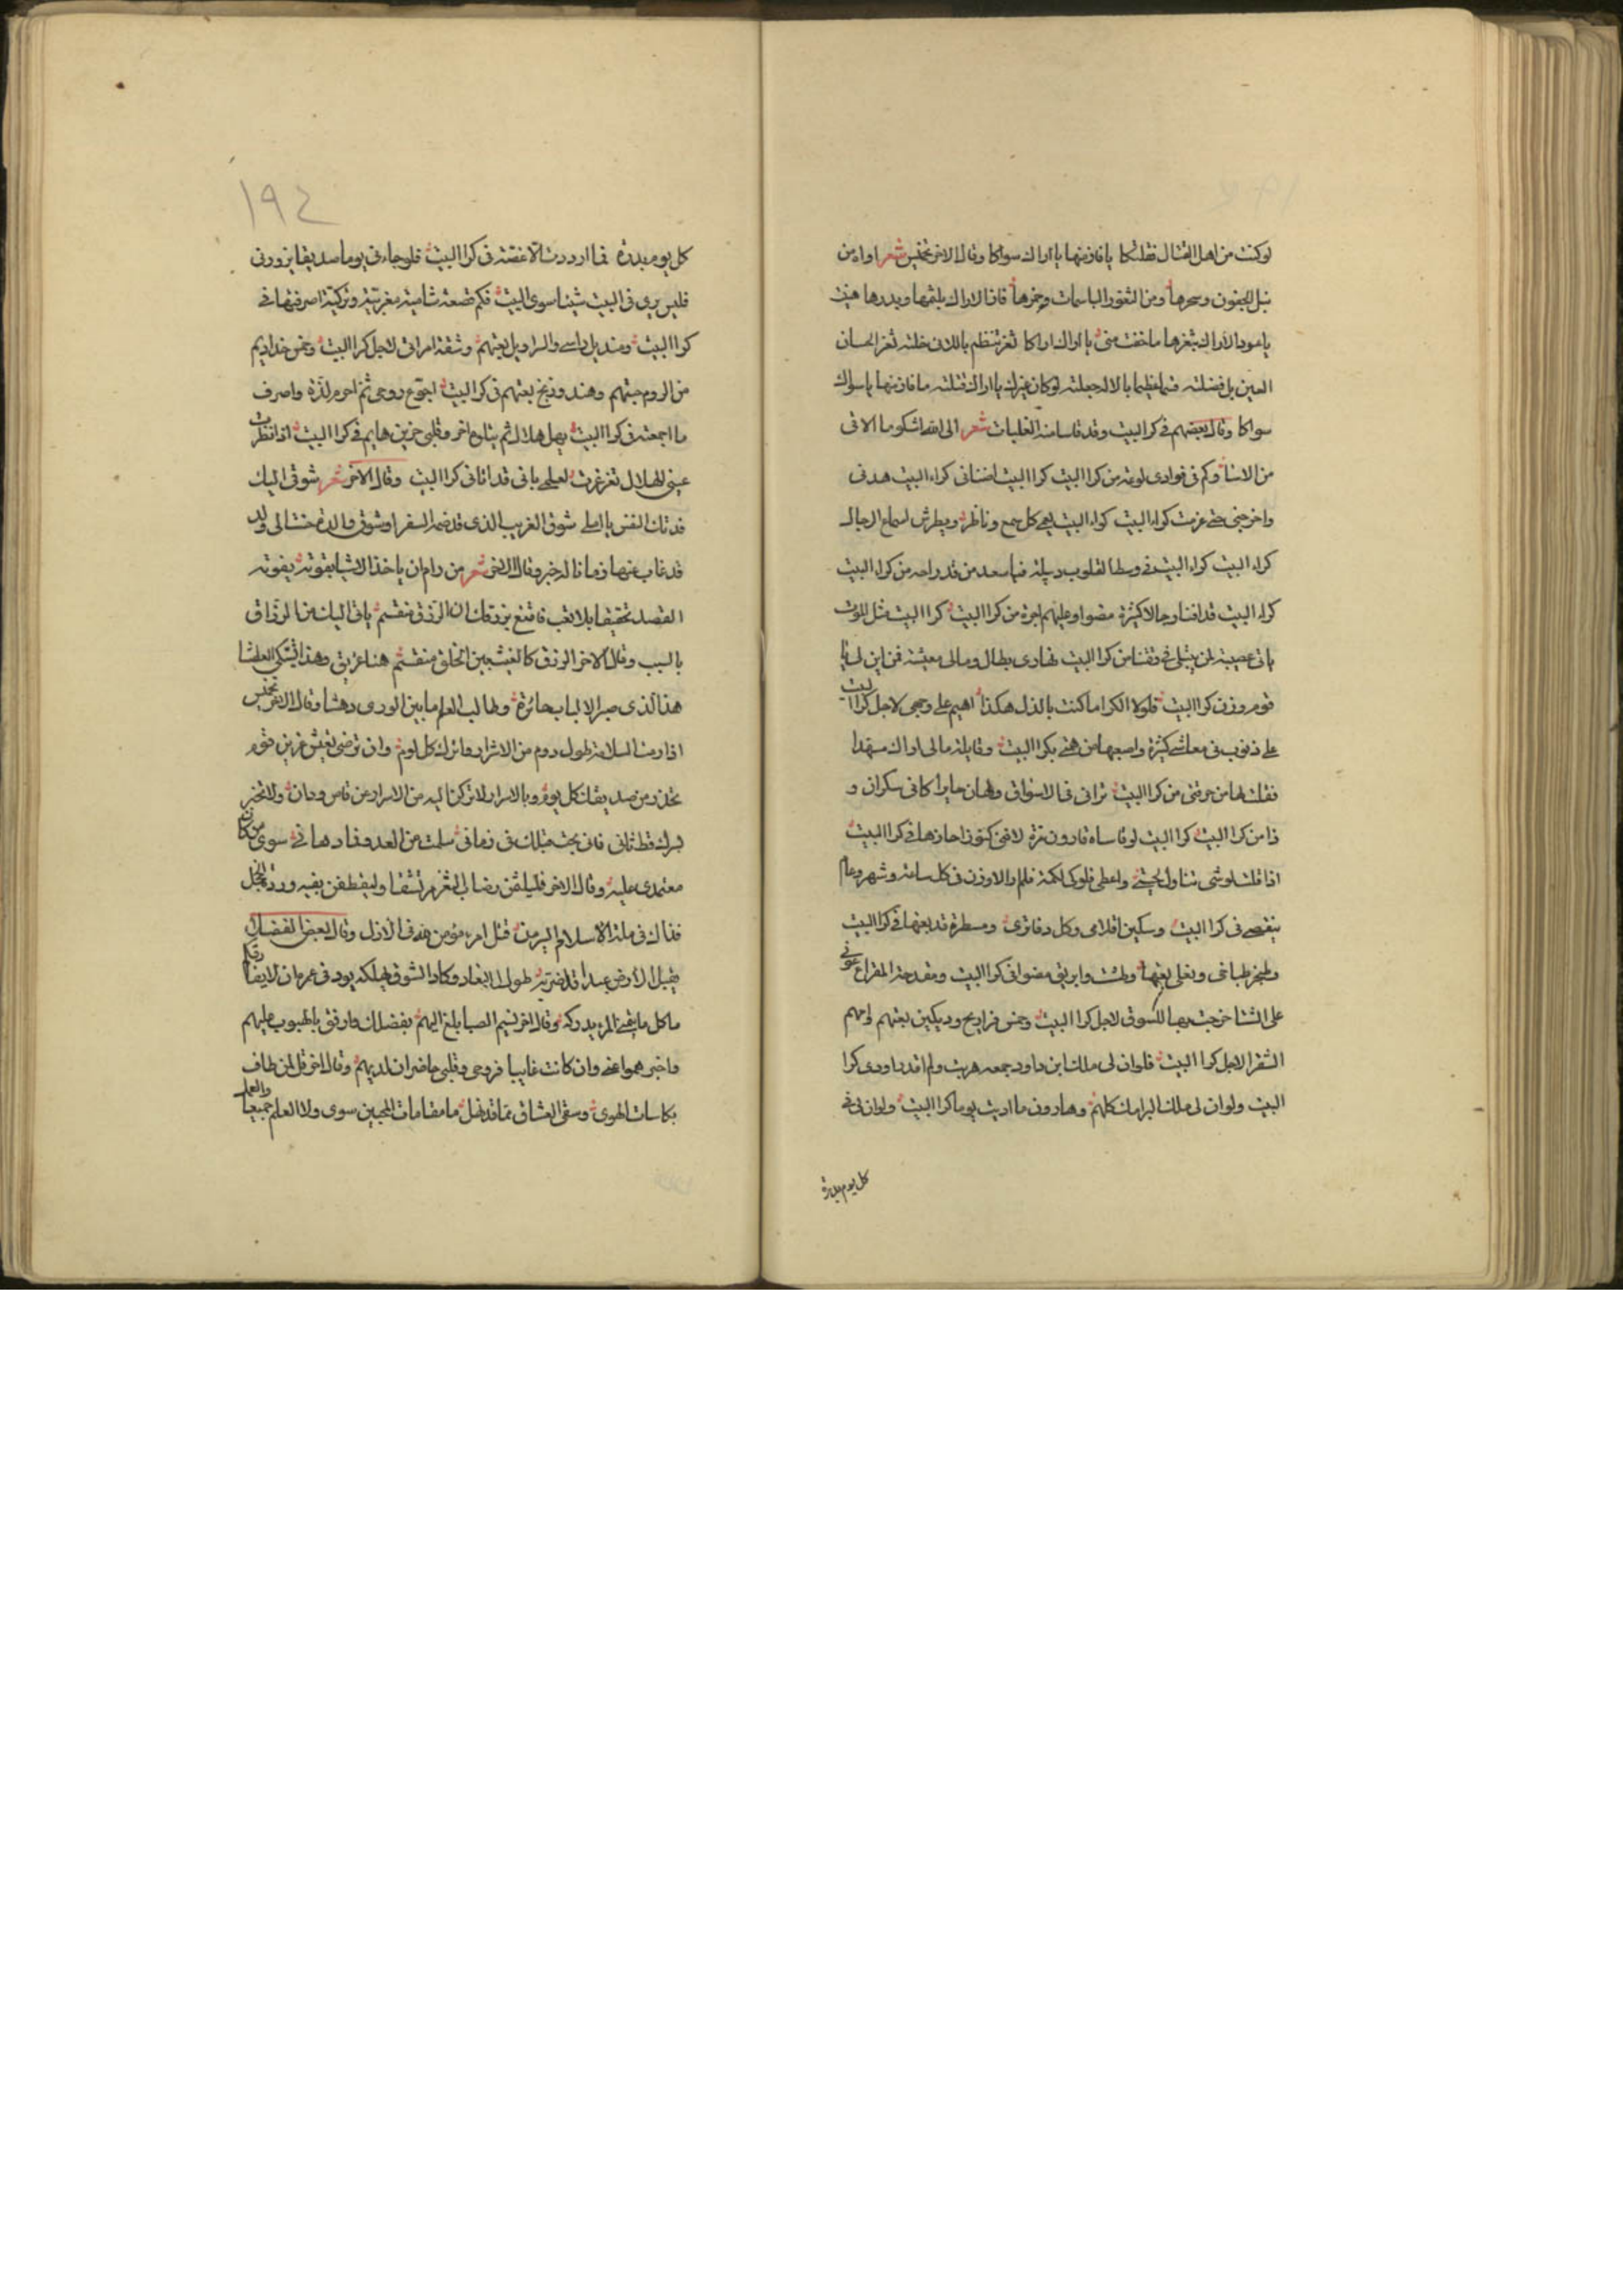 لو كنت من اهل القتال قتلتكا يا فاز منها يا اراك سواكا وقال الاخر تخميس شعر اواه من
نبل الجفون وسحرها ومن الثغور الباسمات وخمرها فانا الاراك بلثمها وبدرها هنيت
يا عود الاراك بثغرها ما خفت مني يا اراك اراكا ثغر تنظم باللآل خلته ثغر الحسان
العين بل فضلته قسما عظيما بالاله جعلته لو كان غيرك يا اراك قتلته ما فاز منها يا سواك
سواكا وقال بعضهم في كرا البيت وقد قاسا منه الغلبات شعر الى الله اشكو ما الاقى
من الاسا وكم في فوادى لوعة من كرا البيت كرا البيت اضنانى كراء البيت هدنى
واخرجنى حتى عزمت كراء البيت كراء البيت يعمى كل سمع وناظر ويطرش اسماع الرجال
كراء البيت كراء البيت في وسط القلوب دبيلة فيا سعد من قد راحه من كراء البيت
كراء البيت قد افنا رجالا كثيرة مضوا وعليهم اجرة من كرا البيت كرا البيت مثل الموت
ياتى عصيبة لمن يبتلى في وقتنا من كرا البيت نهارى بطال ومالى معيشة فمن اين لى يا
قوم وزن كرا البيت فلولا الكرا ما كنت بالذل هكذا اهيم على وجهى لاجل كرا البيت
على ذنوب في معاشى كثيرة واصعبها من همى بكرا البيت وقايلة مالى اراك مسهدا
فقلت لها من حرقتى من كرا البيت ترانى في الاسواق ولهان حايرا كانى سكران و
ذا من كرا البيت كرا البيت لو قاساه قارون مرة لافنى كنوزا حازها في كرا البيت
اذا قلت لوشى تناول لحيتى واعطى فلوكى لكمة فلم والاوزن في كل ساعة وشهر وعام
ينقضى في كرا البيت وسكين اقلامى وكل دفاترى ومسطرة قد بعتها في كرا البيت
وطنجر طباخى وبغلى بعتها وطشت وابريق مضوا في كرا البيت ومقدحة المقراع عونى
على الشتا خرجت بها للسوق لاجل كرا البيت وخمس فراريج وديكين بعتهم وامهم
الشقرا لاجل كرا البيت فلو ان لى ملك ابن داود جمعه هربت ولم اقدر اودى كرا
البيت ولو ان لى ملك البرامك كلهم وهارون ما اديت يوما كرا البيت ولو ان لى في
كل يوم بدرة
١٩٤
كل يوم بدرة فما ارددت الا غصة في كرا البيت فلو جاءنى يوما صديقا يزورنى
فليس يرى في البيت شيئا سوى البيت فكم قصعة شامية مغربية وتركية اصرفتها في
كرا البيت ومنديل راسى والسراويل بعتهم وشقة امراتى لاجل كرا البيت وخمس خداديم
من الروم جبتهم وهند وزنج بعتهم في كرا البيت اجوع روحى ثم احرم لذة واصرف
ما اجمعته في كرا البيت يهل هلال ثم يتلوه اخر وقلبى حزين هايم في كرا البيت اذا نظرت
عينى الهلال تغرغرت لعلمى بانى قد اتانى كرا البيت وقال الاخر شعر شوقى اليك
فدتك النفس يا املى شوق الغريب الذى قد ضمه السفر او شوق والدة حنت الى ولد
قد غاب عنها زمانا له خبر وقال الاخر شعر من رام ان ياخذ الاشيا بقوته يفوته
القصد تحقيقا بلا تعب فاقنع برزقك ان الرزق منقسم ياتى اليك من الرزاق
بالسبب وقال الاخر الرزق كالغيث بين الخلق منقسم هذا غريق وهذا يشتكى العطشا
هذا الذى صير الالباب حائرة وطالب العلم ما بين الورى دهشا وقال الاخر تخميس
اذا رمت السلامة طول دوم من الاشرار فاترك كل لوم وان ترضى بعيش عزيز قوم
تحذر من صديقك كل يوم وبالاسرار لا تركن اليه من الاسرار عن قاس ودان ولا تخبر
بسرك قط ثانى فانى بحث مثلك في زمانى سلمت من العدو فما دهانى سوى من كان
معتمدى عليه وقال الاخر فليلقن رضابى الثغر مرتشفا وليقطفن بفيه ورد الخجل
فذاك في ملة الاسلام اليس من قتل امرء مؤمن هذا في الازل وقال بعض الفضلا
يقبل الارض عبدا قد اضر به طول البعاد وكاد الشوق يهلكه يود في عمره ان لا يفارقكم
ما كل ما يتمنى المرء يدركه وقال اخر نسيم الصبا بلغ اليهم بفضلك وارفق بالهبوب عليهم
واخبرهموا عنى وان كانت غايبا فروحى وقلبى حاضران لديهم وقال اخر قل لمن طاف
بكاسات الهوى وسقى العشاق مما قد نهل ما مقامات المحبين سوى ولا العلم جميعا والعمل